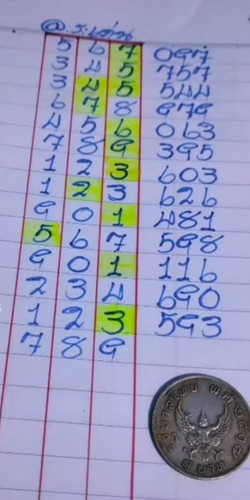 @ ร.เด่น
5 6 7 097
3 4 5 757
3 4 5 544
6 7 8 979
4 5 6 063
7 8 9 395
1 2 3 603
1 2 3 626
9 0 1 481
5 6 7 598
9 0 1 116
2 3 4 690
1 2 3 593
7 8 9